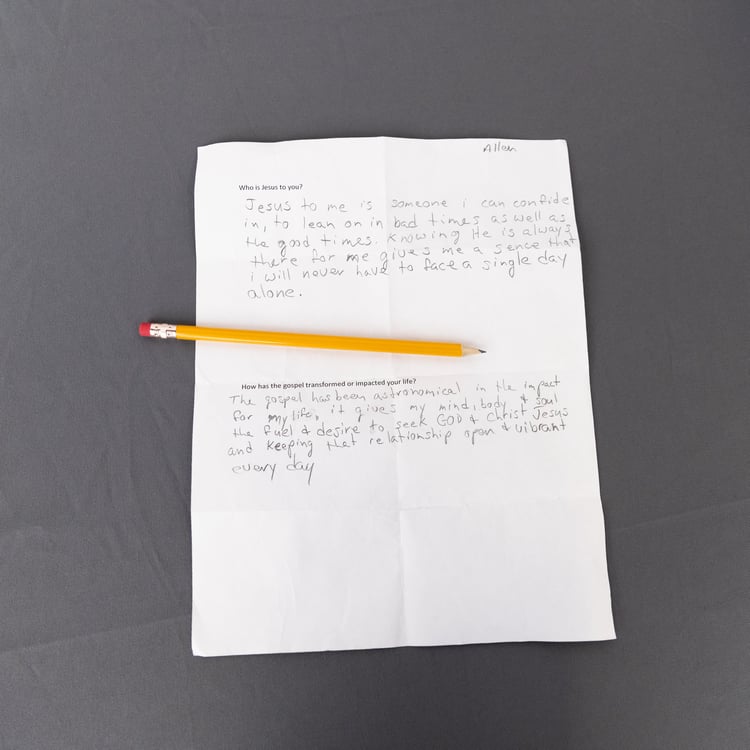 Allen
Who is Jesus to you?
Jesus to me is someone i can confide
in, to lean on in bad times as well as
the good times. Knowing He is always
there for me gives me a sence that
i will never have to face a single day
alone.
How has the gospel transformed or impacted your life?
The gospel has been astronomical in the impact
for my life, it gives my mind, body & soul
the fuel & desire to seek GOD & Christ Jesus
and keeping that relationship open & vibrant
every day